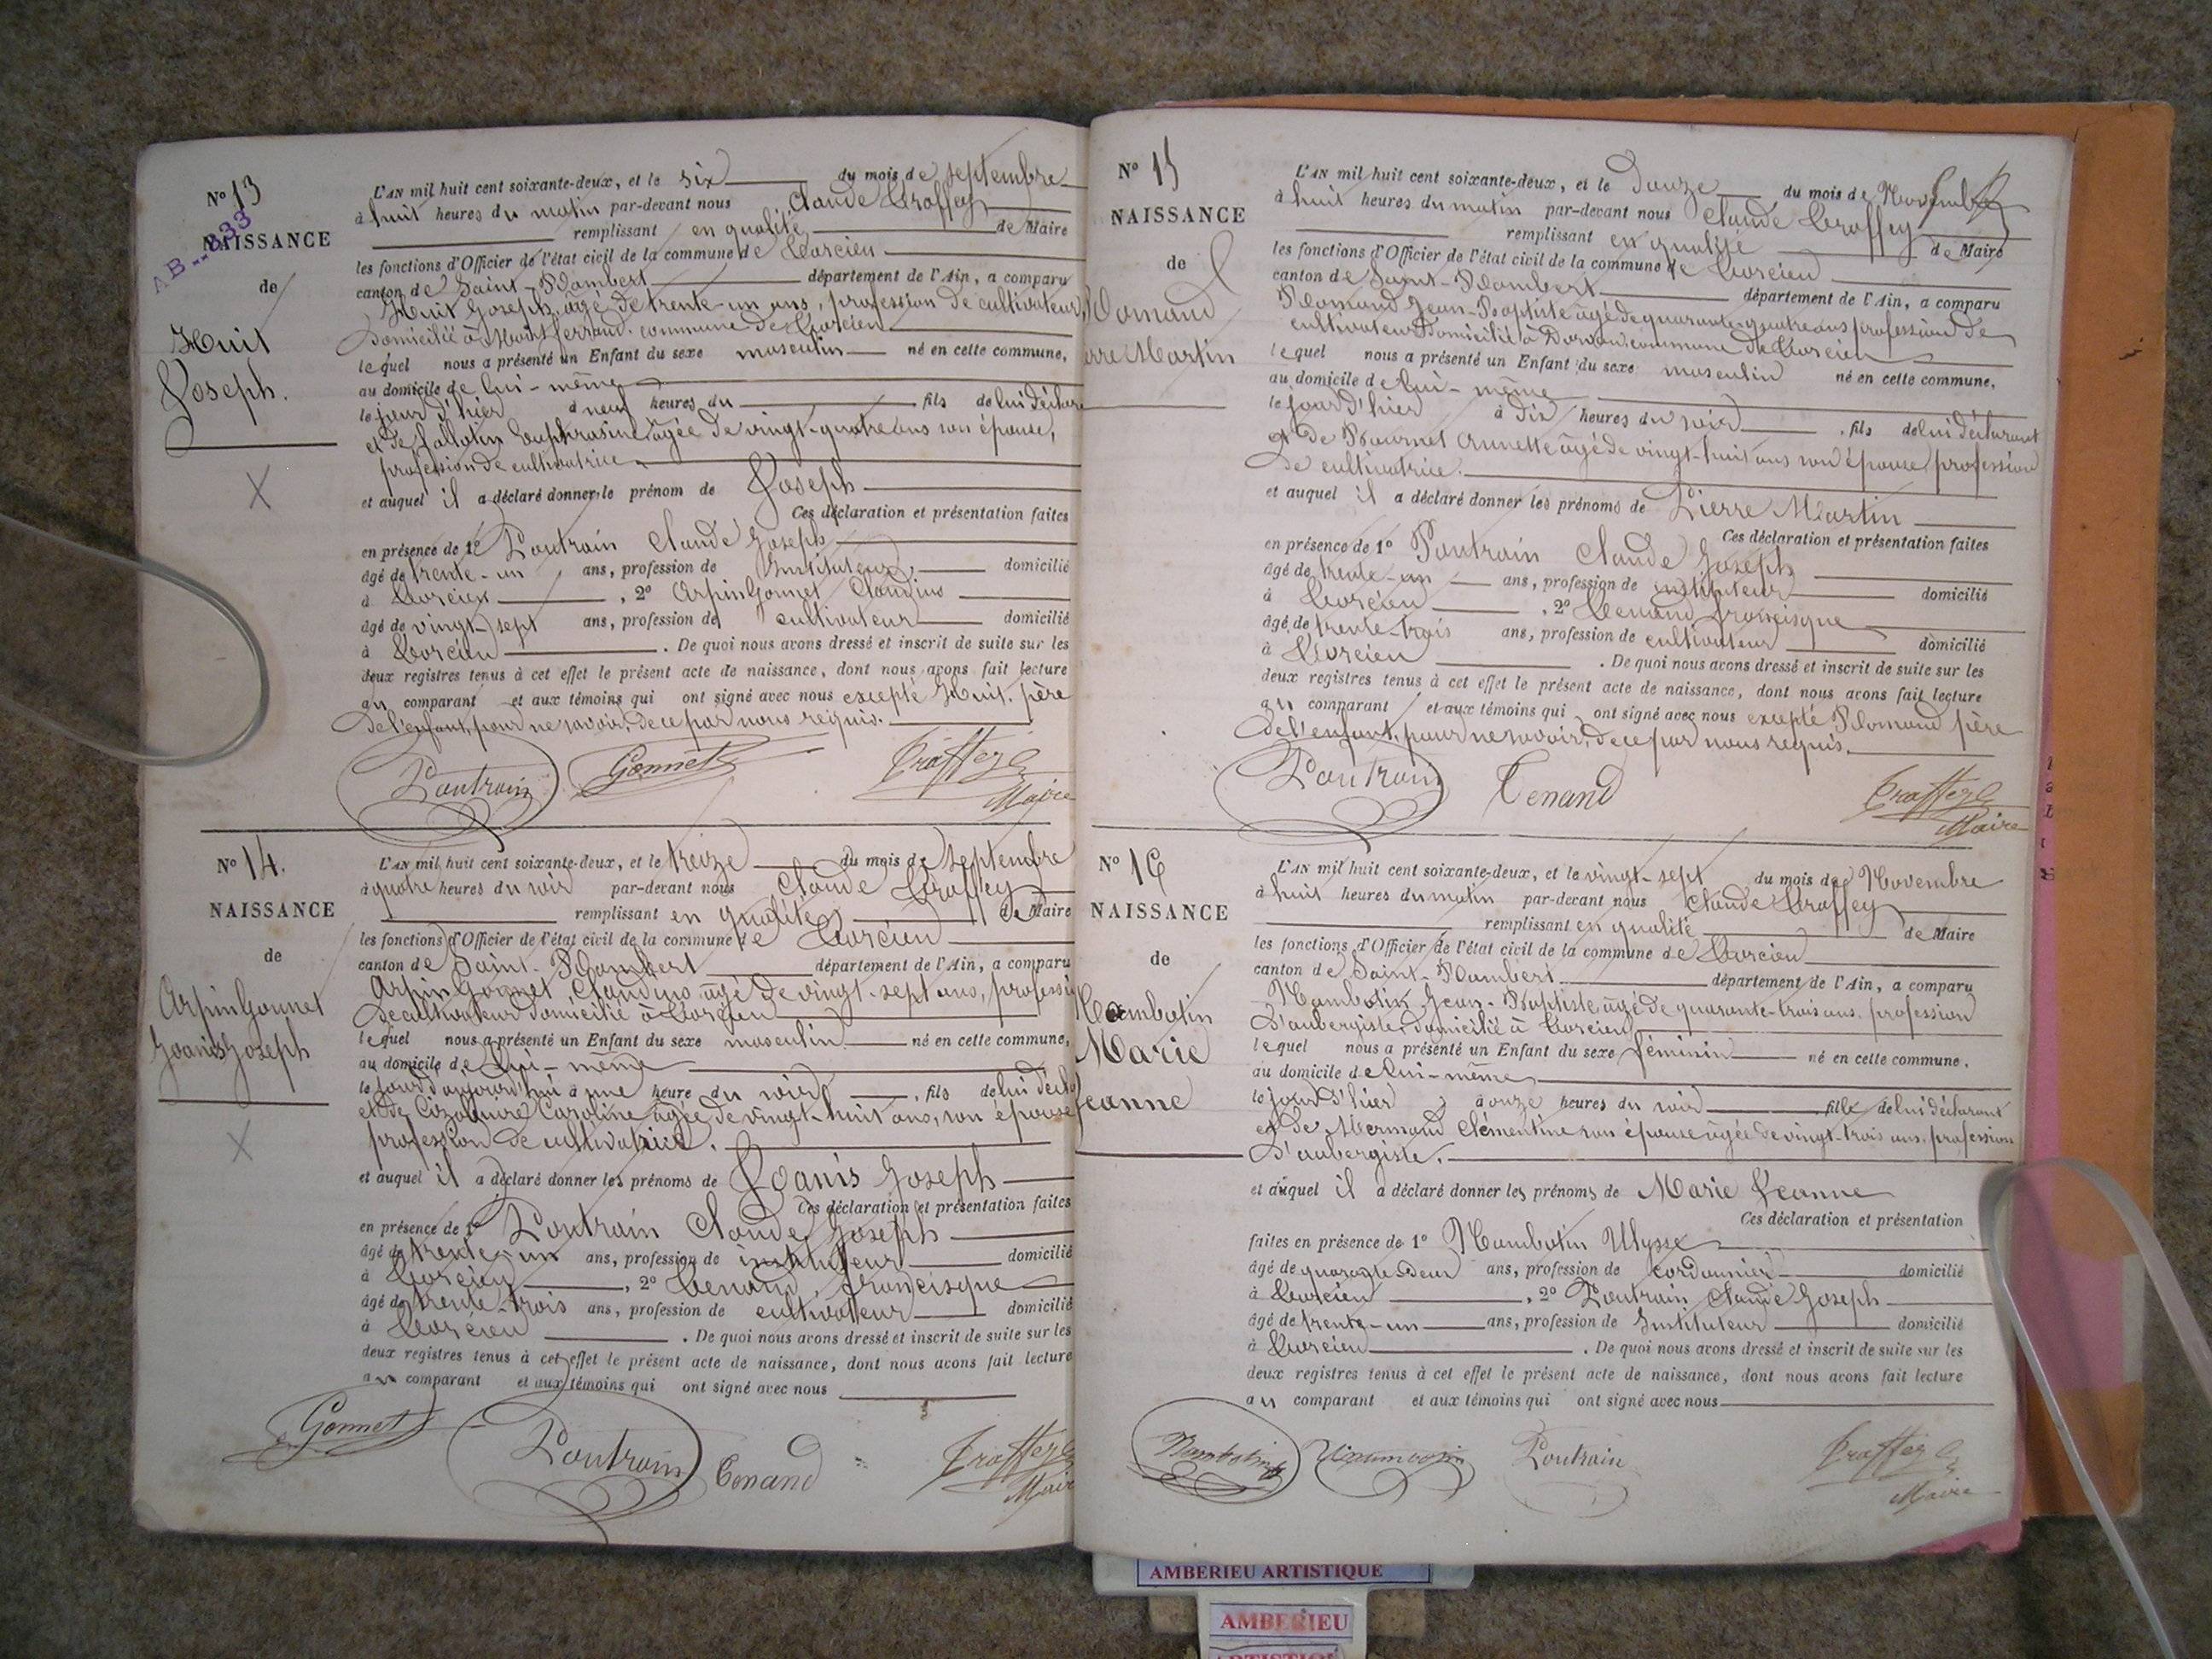 N° 13
AB--333
NAISSANCE
de
Huit
Joseph.
L'AN mil huit cent soixante-deux, et le six du mois de septembre
à huit heures du matin par-devant nous Claude Troffey
remplissant en qualité de Maire
les fonctions d'Officier de l'état civil de la commune de Torcieu
canton de Saint-Rambert département de l'Ain, a comparu
Huit Joseph, âgé de trente-un ans, profession de cultivateur,
domicilié à Montferrand commune de Torcieu
lequel nous a présenté un Enfant du sexe masculin né en cette commune,
au domicile de lui-même
le jour d'hier à neuf heures du fils de lui déclara
et de Euphrasine âgée de vingt-quatre ans son épouse,
profession de cultivatrice
et auquel il a déclaré donner le prénom de Joseph
Ces déclaration et présentation faites
en présence de 1° Poutrain Claude Joseph
âgé de trente-un ans, profession de Instituteur domicilié
à Torcieu, 2° Arpin Gonnet Claudius
âgé de vingt-sept ans, profession de cultivateur domicilié
à Torcieu. De quoi nous avons dressé et inscrit de suite sur les
deux registres tenus à cet effet le présent acte de naissance, dont nous avons fait lecture
au comparant et aux témoins qui ont signé avec nous excepté Huit père
de l'enfant, pour ne savoir, de ce par nous requis.
Poutrain Gonnet Troffey C
Maire
N° 14.
NAISSANCE
de
Arpin Gonnet
Joanis Joseph
L'AN mil huit cent soixante-deux, et le treize du mois de septembre
à quatre heures du soir par-devant nous Claude Troffey
remplissant en qualité de Maire
les fonctions d'Officier de l'état civil de la commune de Torcieu
canton de Saint-Rambert département de l'Ain, a comparu
Arpin Gonnet Claudius âgé de vingt-sept ans, professi
de cultivateur domicilié à Torcieu
lequel nous a présenté un Enfant du sexe masculin né en cette commune,
au domicile de lui-même
le jour d'aujourd'hui à une heure du soir, fils de lui décla
et de Caroline âgée de vingt-huit ans, son épouse
profession de cultivatrice.
et auquel il a déclaré donner les prénoms de Joanis Joseph
Ces déclaration et présentation faites
en présence de 1° Poutrain Claude Joseph
âgé de trente-un ans, profession de instituteur domicilié
à Torcieu, 2° Tenand Francisque
âgé de trente-trois ans, profession de cultivateur domicilié
à Torcieu. De quoi nous avons dressé et inscrit de suite sur les
deux registres tenus à cet effet le présent acte de naissance, dont nous avons fait lecture
au comparant et aux témoins qui ont signé avec nous
Gonnet Poutrain Tenand Troffey C
Mair
N° 15
NAISSANCE
de
Romand
erre Martin
L'AN mil huit cent soixante-deux, et le douze du mois de Novembre
à huit heures du matin par-devant nous Claude Troffey
remplissant en qualité de Maire
les fonctions d'Officier de l'état civil de la commune de Torcieu
canton de Saint-Rambert département de l'Ain, a comparu
Romand Jean-Baptiste âgé de quarante-quatre ans profession de
cultivateur domicilié à Dorvan commune de Torcieu
lequel nous a présenté un Enfant du sexe masculin né en cette commune,
au domicile de lui-même
le jour d'hier à dix heures du soir, fils de lui déclarant
et de Annette âgé de vingt-huit ans son épouse, profession
de cultivatrice.
et auquel il a déclaré donner les prénoms de Pierre Martin
Ces déclaration et présentation faites
en présence de 1° Poutrain Claude Joseph
âgé de trente-un ans, profession de instituteur domicilié
à Torcieu, 2° Tenand Francisque
âgé de trente-trois ans, profession de cultivateur domicilié
à Torcieu. De quoi nous avons dressé et inscrit de suite sur les
deux registres tenus à cet effet le présent acte de naissance, dont nous avons fait lecture
au comparant et aux témoins qui ont signé avec nous excepté Romand père
de l'enfant, pour ne savoir, de ce par nous requis.
Poutrain Tenand Troffey C
Maire
N° 16
NAISSANCE
de
Rambotin
Marie
Jeanne
L'AN mil huit cent soixante-deux, et le vingt-sept du mois de Novembre
à huit heures du matin par-devant nous Claude Troffey
remplissant en qualité de Maire
les fonctions d'Officier de l'état civil de la commune de Torcieu
canton de Saint-Rambert département de l'Ain, a comparu
Rambotin Jean-Baptiste âgé de quarante-trois ans, profession
d'aubergiste, domicilié à Torcieu
lequel nous a présenté un Enfant du sexe féminin né en cette commune.
au domicile de lui-même
le jour d'hier à onze heures du soir, fille de lui déclarant
et de Mermand Clémentine son épouse âgée de vingt-trois ans, profession
d'aubergiste.
et auquel il a déclaré donner les prénoms de Marie Jeanne
Ces déclaration et présentation
faites en présence de 1° Rambotin Ulysse
âgé de quarante-deux ans, profession de cordonnier domicilié
à Torcieu, 2° Poutrain Claude Joseph
âgé de trente-un ans, profession de Instituteur domicilié
à Torcieu. De quoi nous avons dressé et inscrit de suite sur les
deux registres tenus à cet effet le présent acte de naissance, dont nous avons fait lecture
au comparant et aux témoins qui ont signé avec nous
Rambotin Rambotin Poutrain Troffey C
Maire
AMBERIEU ARTISTIQUE
AMBERIEU
ARTISTIQUE